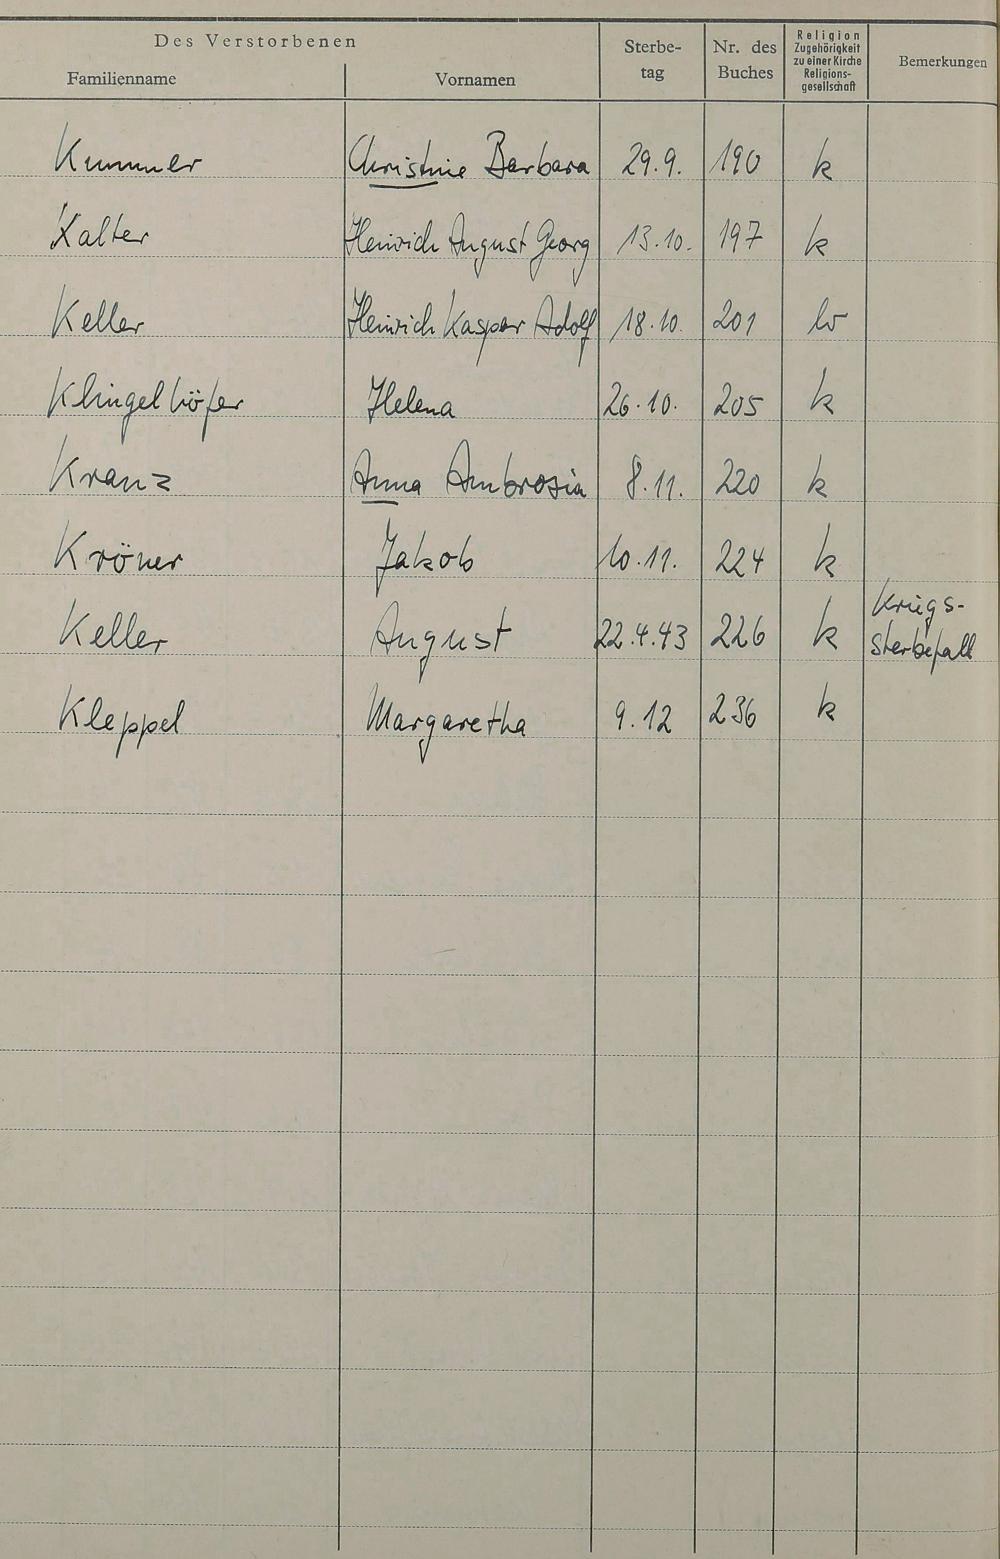 Des Verstorbenen
Familienname
Vornamen
Sterbe-
tag
Nr. des
Buches
Religion
Zugehörigkeit
zu einer Kirche
Religions-
gesellschaft
Bemerkungen
Kummer Christine Barbara 29.9. 190 k
Kalter Heinrich August Georg 13.10. 197 k
Keller Heinrich Kaspar Adolf 18.10. 201
Klingelhöfer Helena 26.10. 205 k
Kranz Anna Ambrosia 8.11. 220 k
Kröner Jakob 10.11. 224 k
Keller August 22.4.43 226 k Kriegs-
sterbefall
Kleppel Margaretha 9.12 236 k